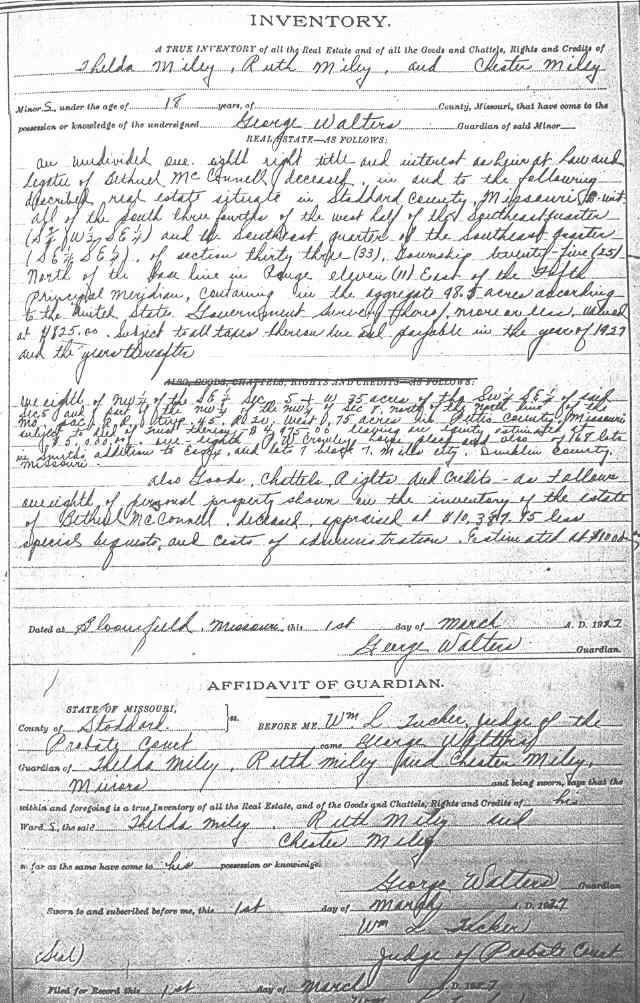 INVENTORY.
A TRUE INVENTORY of all the Real Estate and of all the Goods and Chattels, Rights and Credits of
Thelda Miley, Ruth Miley, and Chester Miley
Minor S, under the age of 18 years, of County, Missouri, that have come to the
possession or knowledge of the undersigned George Walters Guardian of said Minor
REAL ESTATE—AS FOLLOWS:
an undivided one eighth right title and interest as heir at law and
legatee of Bethuel McConnell, deceased, in and to the following
described real estate situate in Stoddard County, Missouri to-wit:
All of the South three fourths of the west half of the Southeast quarter
(S¾ W½ SE¼) and the Southeast quarter of the Southeast quarter
(SE¼ SE¼), of section thirty three (33), Township twenty-five (25)
North of the base line in Range eleven (11) East of the Fifth
Principal Meridian, containing in the aggregate 98.5 acres according
to the United State Government Survey thereof, more or less, valued
at $825.00. Subject to all taxes thereon due and payable in the year of 1927
and the years thereafter
ALSO, GOODS, CHATTELS, RIGHTS AND CREDITS—AS FOLLOWS:
one eighth of NW¼ of the SE¼ Sec. 5 + W 35 acres of the SW¼ SE¼ of said
Sec 5 and part of the NW¼ of the NW¼ of Sec 8, north of the North line of the
Mo. Pac. R.R. twp. 45, R 20, West, 1.75 acres in Pettis County, Missouri
subject to deed of trust thereon leaving an equity estimated at
one-eighth P.W. Crowley house place and also of 168 lots
in Smiths addition to and lots 7 block 7. Mills city. Dunklin County,
Missouri.
also Goods, Chattels, Rights and Credits - as Follows
one eighth of personal property shown in the inventory of the estate
of Bethuel McConnell, deceased, appraised at $10,387.75 less
special bequests, and costs of administration. Estimated at $1000.
Dated at Bloomfield, Missouri, this 1st day of March A. D. 1927
George Walters Guardian.
AFFIDAVIT OF GUARDIAN.
STATE OF MISSOURI,
County of Stoddard } ss. BEFORE ME Wm L Tucker, Judge of the
Probate Court came George Walters
Guardian of Thelda Miley, Ruth Miley and Chester Miley,
Minors and being sworn, says that the
within and foregoing is a true Inventory of all the Real Estate, and of the Goods and Chattels, Rights and Credits of his
Ward S, the said Thelda Miley, Ruth Miley and
Chester Miley
so far as the same have come to his possession or knowledge.
George Walters Guardian
Sworn to and subscribed before me, this 1st day of March A. D. 1927
Wm L Tucker
(Seal) Judge of Probate Court
Filed for Record this 1st day of March A. D. 1927